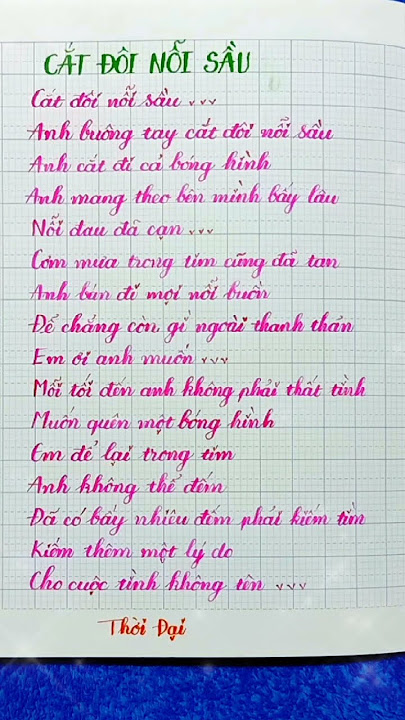 CẮT ĐÔI NỖI SẦU
Cắt đôi nỗi sầu ...
Anh buông tay cắt đôi nỗi sầu
Anh cắt đi cả bóng hình
Anh mang theo bên mình bấy lâu
Nỗi đau đã cạn ...
Cơn mưa trong tim cũng đã tan
Anh bán đi mọi nỗi buồn
Để chẳng còn gì ngoài thanh thản
Em ơi anh muốn ...
Mỗi tối đến anh không phải thất tình
Muốn quên một bóng hình
Em để lại trong tim
Anh không thể đếm
Đã có bấy nhiêu đếm phải kiếm tìm
Kiếm thêm một lý do
Cho cuộc tình không tên ...
Thời Đại